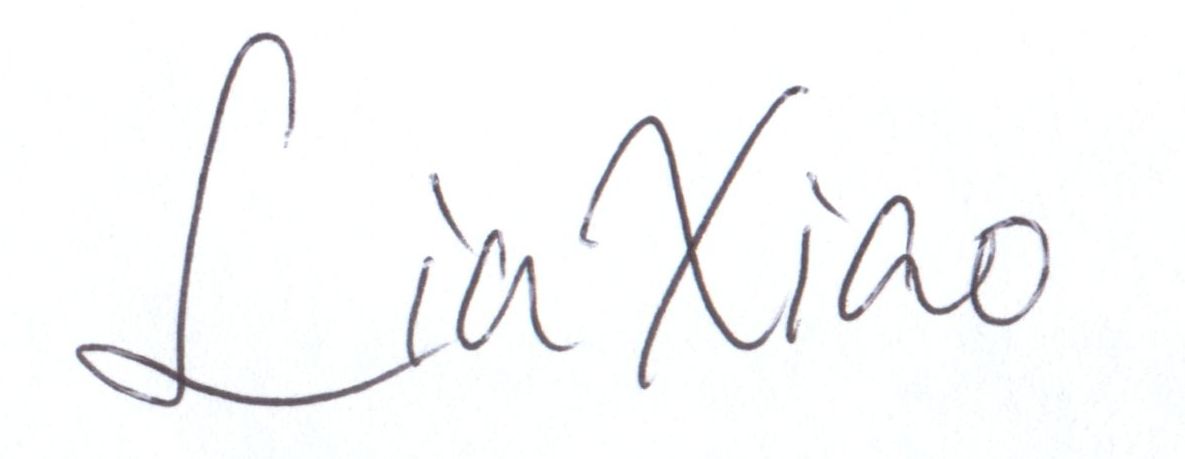 Lia Xiao